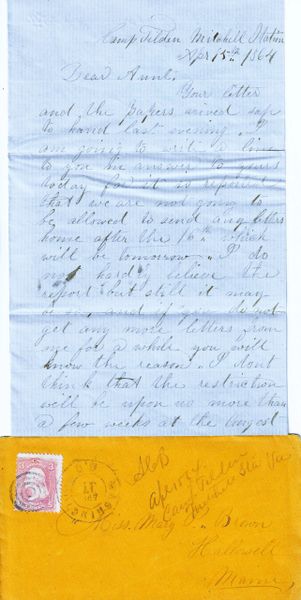 Camp Tilden Mitchell Station
Apr 15th 1864
Dear Aunt.
Your letter
and the papers arived safe
to hand last evening. I
am going to writ a line
to you in answer to yours
today for it is reported
that we are not going to
be allowed to send any letters
home after the 16th which
will be tomorrow. I do
not hardly believe the
report but still it may
be so, and if you do not
get any more letters from
me for a while you will
know the reason. I dont
think that the restriction
will be upon us more than
a few weeks at the longest
Apr 15th
Camp Tilden
Mitchell Sta Va
Miss. Mary Brown
Hallowell
Maine